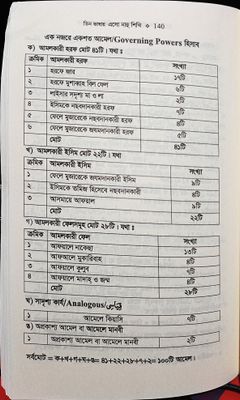 তিন ভাষায় এসো নাহু শিখি ❖ 140
এক নজরে একশত আমেল/Governing Powers হিসাব
ক) আমলকারী হরফ মোট ৪১টি। যথাঃ
ক্রমিক আমলকারী হরফ সংখ্যা
১ হরফে জার ১৭টি
২ হরফে মুশাব্বাহ বিল ফেল ৬টি
৩ লাইসার সদৃশ্য মা ও লা ২টি
৪ ইসিমকে নছবদানকারী হরফ ৭টি
৫ ফেলে মুজারেকে নছবদানকারী হরফ ৪টি
৬ ফেলে মুজারেকে জযমদানকারী হরফ ৫টি
মোট ৪১টি
খ) আমলকারী ইসিম মোট ২২টি। যথা
ক্রমিক আমলকারী ইসিম সংখ্যা
১ ফেলে মুজারেকে জযমদানকারী ইসিম ৯টি
২ ইসিমকে তমিজ হিসেবে নছবদানকারী ৪টি
৩ আসমায়ে আফয়াল ৯টি
মোট ২২টি
গ) আমলকারী ফেলসমূহ মোট ২৮টি। যথাঃ
ক্রমিক আমলকারী ফেল সংখ্যা
১ আফয়ালে নাকেছা ১৩টি
২ আফআলে মুকারিবাহ ৪টি
৩ আফয়ালে কুলুব ৭টি
৪ আফয়ালে মাদাহ ও জম্ম ৪টি
মোট ২৮টি
ঘ) সাদৃশ্য কার্য/Analogous/قياسي
১ আমেলে কিয়াসি ৭টি
ঙ) অপ্রকাশ্য আমেল বা আমেলে মানবী
১ অপ্রকাশ্য আমেল বা আমেলে মানবী ২টি
সর্বমোট = ক+খ+গ+ঘ+ঙ= ৪১+২২+২৮+৭+২= ১০০টি আমেল।